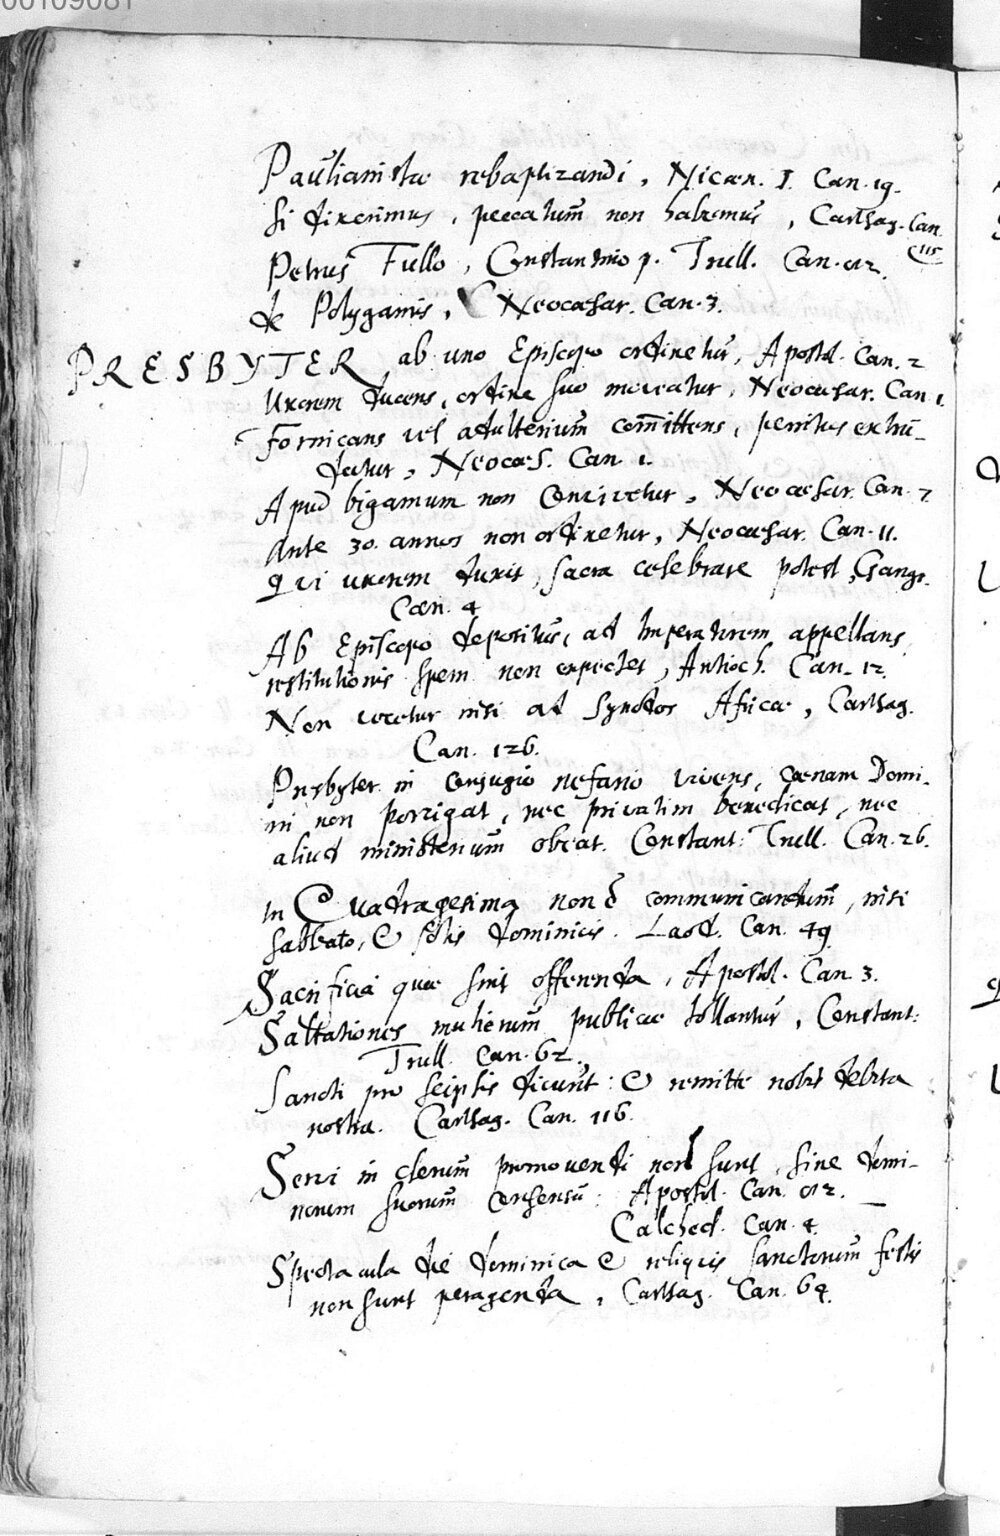 00109081
Paulianistae rebaptizandi, Nicaen. I. Can. 19.
Si dixerimus, peccatum non habemus, Carthag. Can.
115
Petrus Fullo, Constantino p. Trull. Can. 82.
de Polygamis, Neocaesar. Can. 3.
PRESBYTER ab uno Episcopo ordinetur, Apostol. Can. 2
Uxorem ducens, ordine suo moveatur, Neocaesar. Can 1.
Fornicans vel adulterium com̄ittens, penitus extru-
datur, Neocaes. Can. 1.
Apud bigamum non convivetur, Neocaesar. Can. 7
Ante 30. annos non ordinetur, Neocaesar. Can. 11.
Qui uxorem duxit, sacra celebrare potest, Gangr.
Can. 4
Ab Episcopo depositus, ad Imperatorem appellans,
restitutionis spem non expectet, Antioch. Can. 12.
Non vocetur nisi ad Synodos Africae, Carthag.
Can. 126.
Presbyter in conjugio nefario vivens, coenam Domi-
ni non porrigat, nec privatim benedicat, nec
aliud ministerium obeat. Constant: Trull. Can. 26.
In Quadragesima non communicandum, nisi
Sabbato, & solis dominicis. Laod. Can. 49
Sacrificia quae sint offerenda, Apostol. Can 3.
Saltationes mulierum publicae tollantur, Constant:
Trull. Can. 62.
Sancti pro seipsis dicunt: & remitte nobis debita
nostra. Carthag. Can. 116.
Servi in clerum promovendi non sunt, sine domi-
norum suorum consensu: Apostol. Can. 82.
Calched. Can. 4
Spectacula die dominica & reliquis sanctorum festis
non sunt peragenda, Carthag. Can. 64.